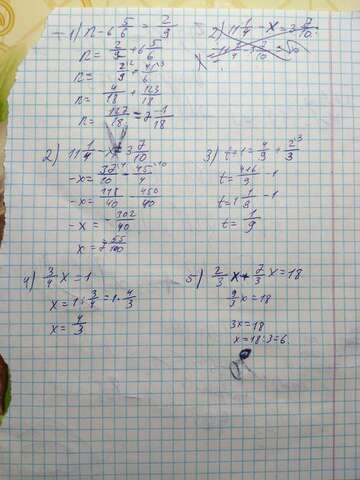 1) n - 6 5/6 = 2/9
n = 2/9 + 6 5/6
n = 2/9 + 41/6
n = 4/18 + 123/18
n = 127/18 = 7 1/18
2) 11 1/4 - x = 3 7/10
2) 11 1/4 - x = 3 7/10
-x = 37/10 - 45/4
-x = 148/40 - 450/40
-x = - 302/40
3) t + 1 = 4/9 + 2/3
t = 4+6/9 - 1
t = 1 1/9 - 1
t = 1/9
4) 3/4 x = 1
x = 1 : 3/4 = 1 · 4/3
x = 4/3
5) 2/3 x + 7/3 x = 18
9/3 x = 18
3x = 18
x = 18 : 3 = 6